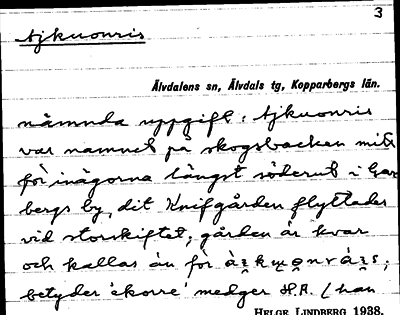 3
Ajkuonris
Älvdalens sn, Älvdals tg, Kopparbergs län.
nämnda uppgift: Ajkuonris
var namnet på skogsbacken mitt
för inägorna längst söderut i Gar
bergs by, dit Knifgården flyttades
vid storskiftet; gården är kvar
och kallas än för
betyder 'ekorre' medger H.R. (han
HELGE LINDBERG 1938.